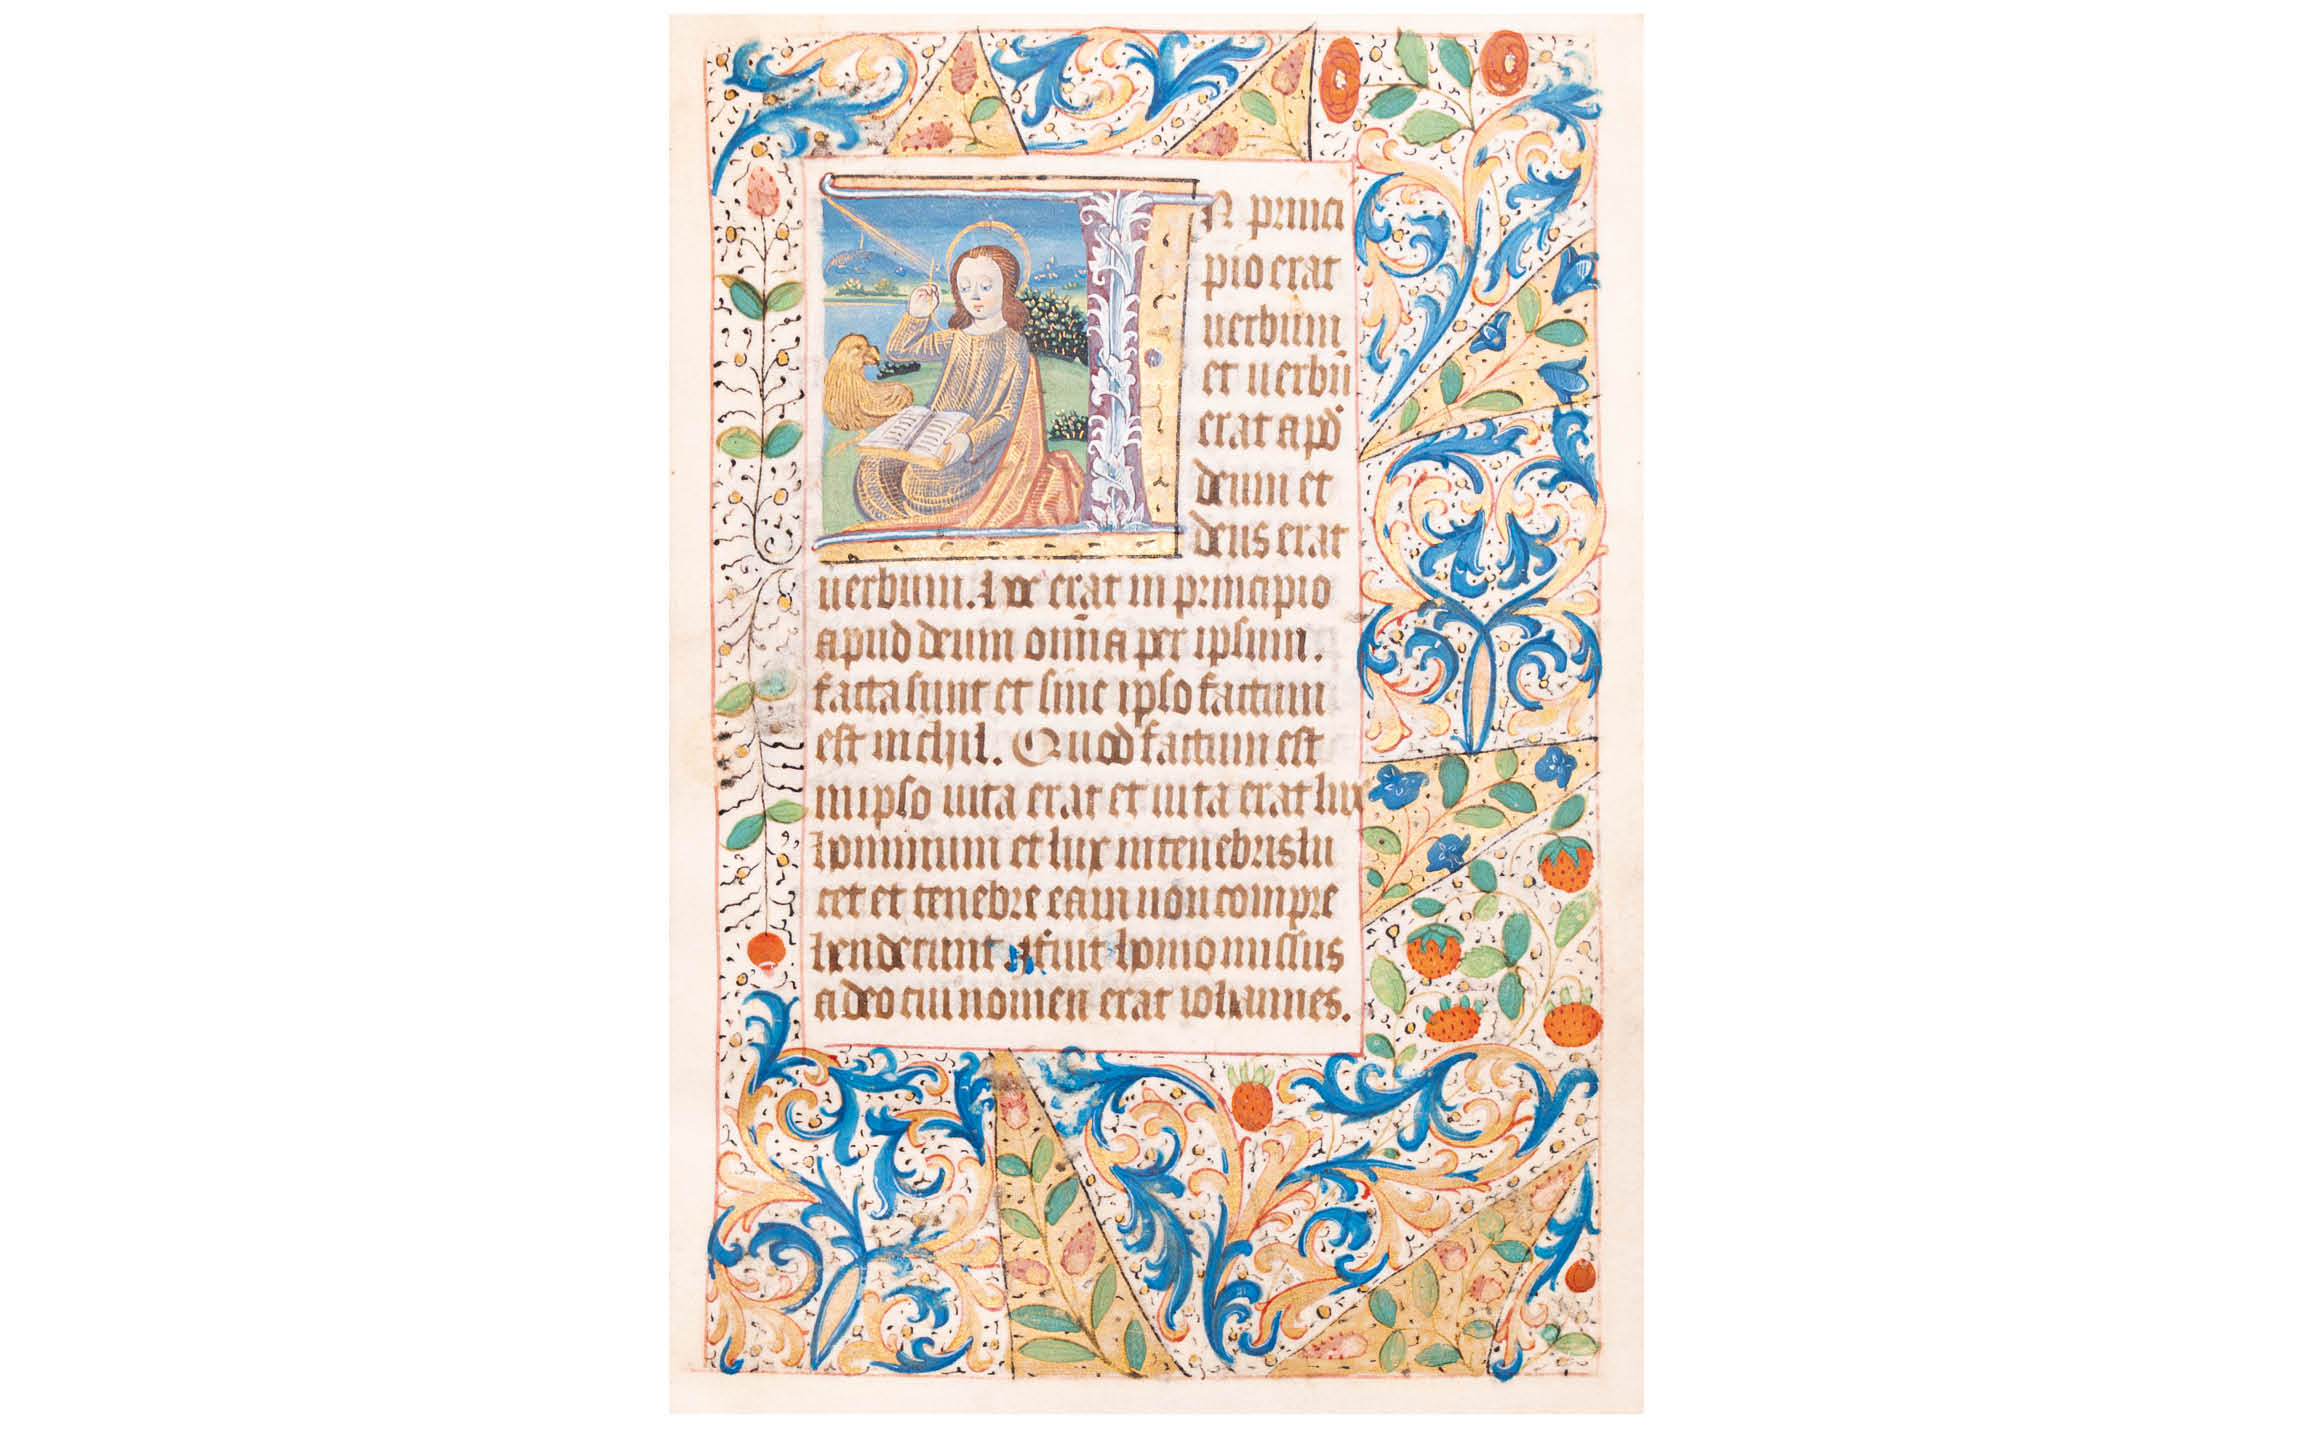 IN princi
pio erat
uerbum
et uerbū
erat apd
deum et
deus erat
uerbum. Hoc erat in principio
apud deum omīa per ipsum.
facta sunt et sine ipso factum
est nichil. Quod factum est
in ipso uita erat et uita erat lux
hominum et lux in tenebris lu
cet et tenebre eam non compre
henderunt fuit homo missus
a deo cui nomen erat iohannes.